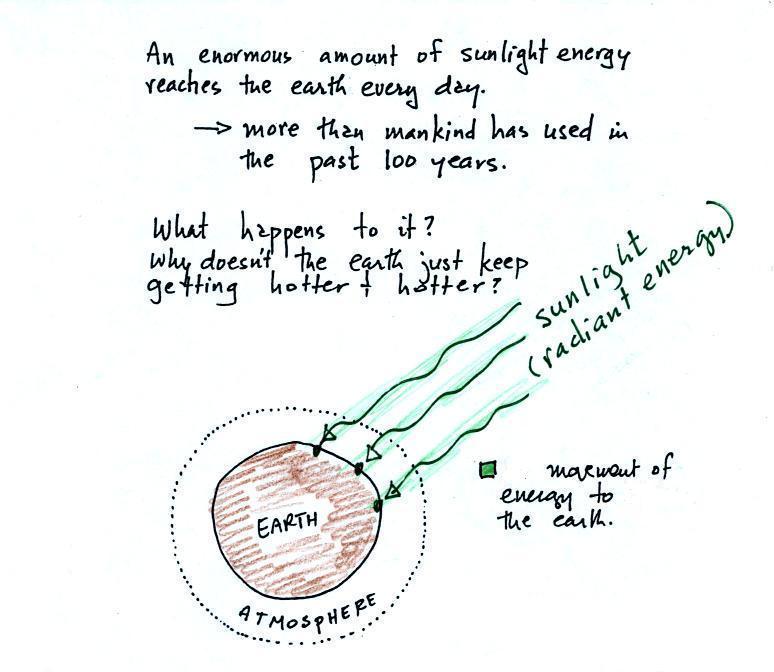 An enormous amount of sunlight energy
reaches the earth every day.
→ more than mankind has used in
the past 100 years.
What happens to it?
Why doesn't the earth just keep
getting hotter + hotter?
sunlight
(radiant energy)
EARTH
ATMOSPHERE
of
energy to
the earth.